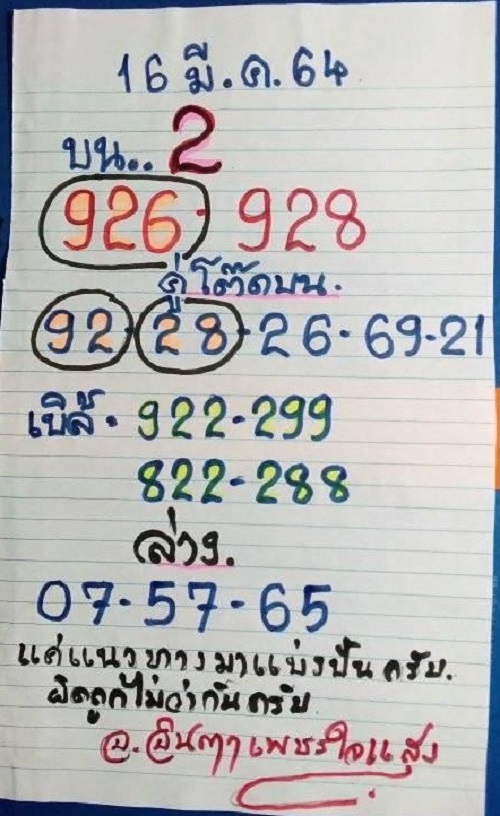 16 มี.ค.64
บน.. 2
926. 928
คู่โต๊ดบน.
92.28.26.69.21
เบิ้ล. 922-299
822-288
ล่าง.
07-57-65
แค่แนวทางมาแบ่งปันครับ.
ผิดถูกไม่ว่ากันครับ
อ.อินตาเพชรใจแสง